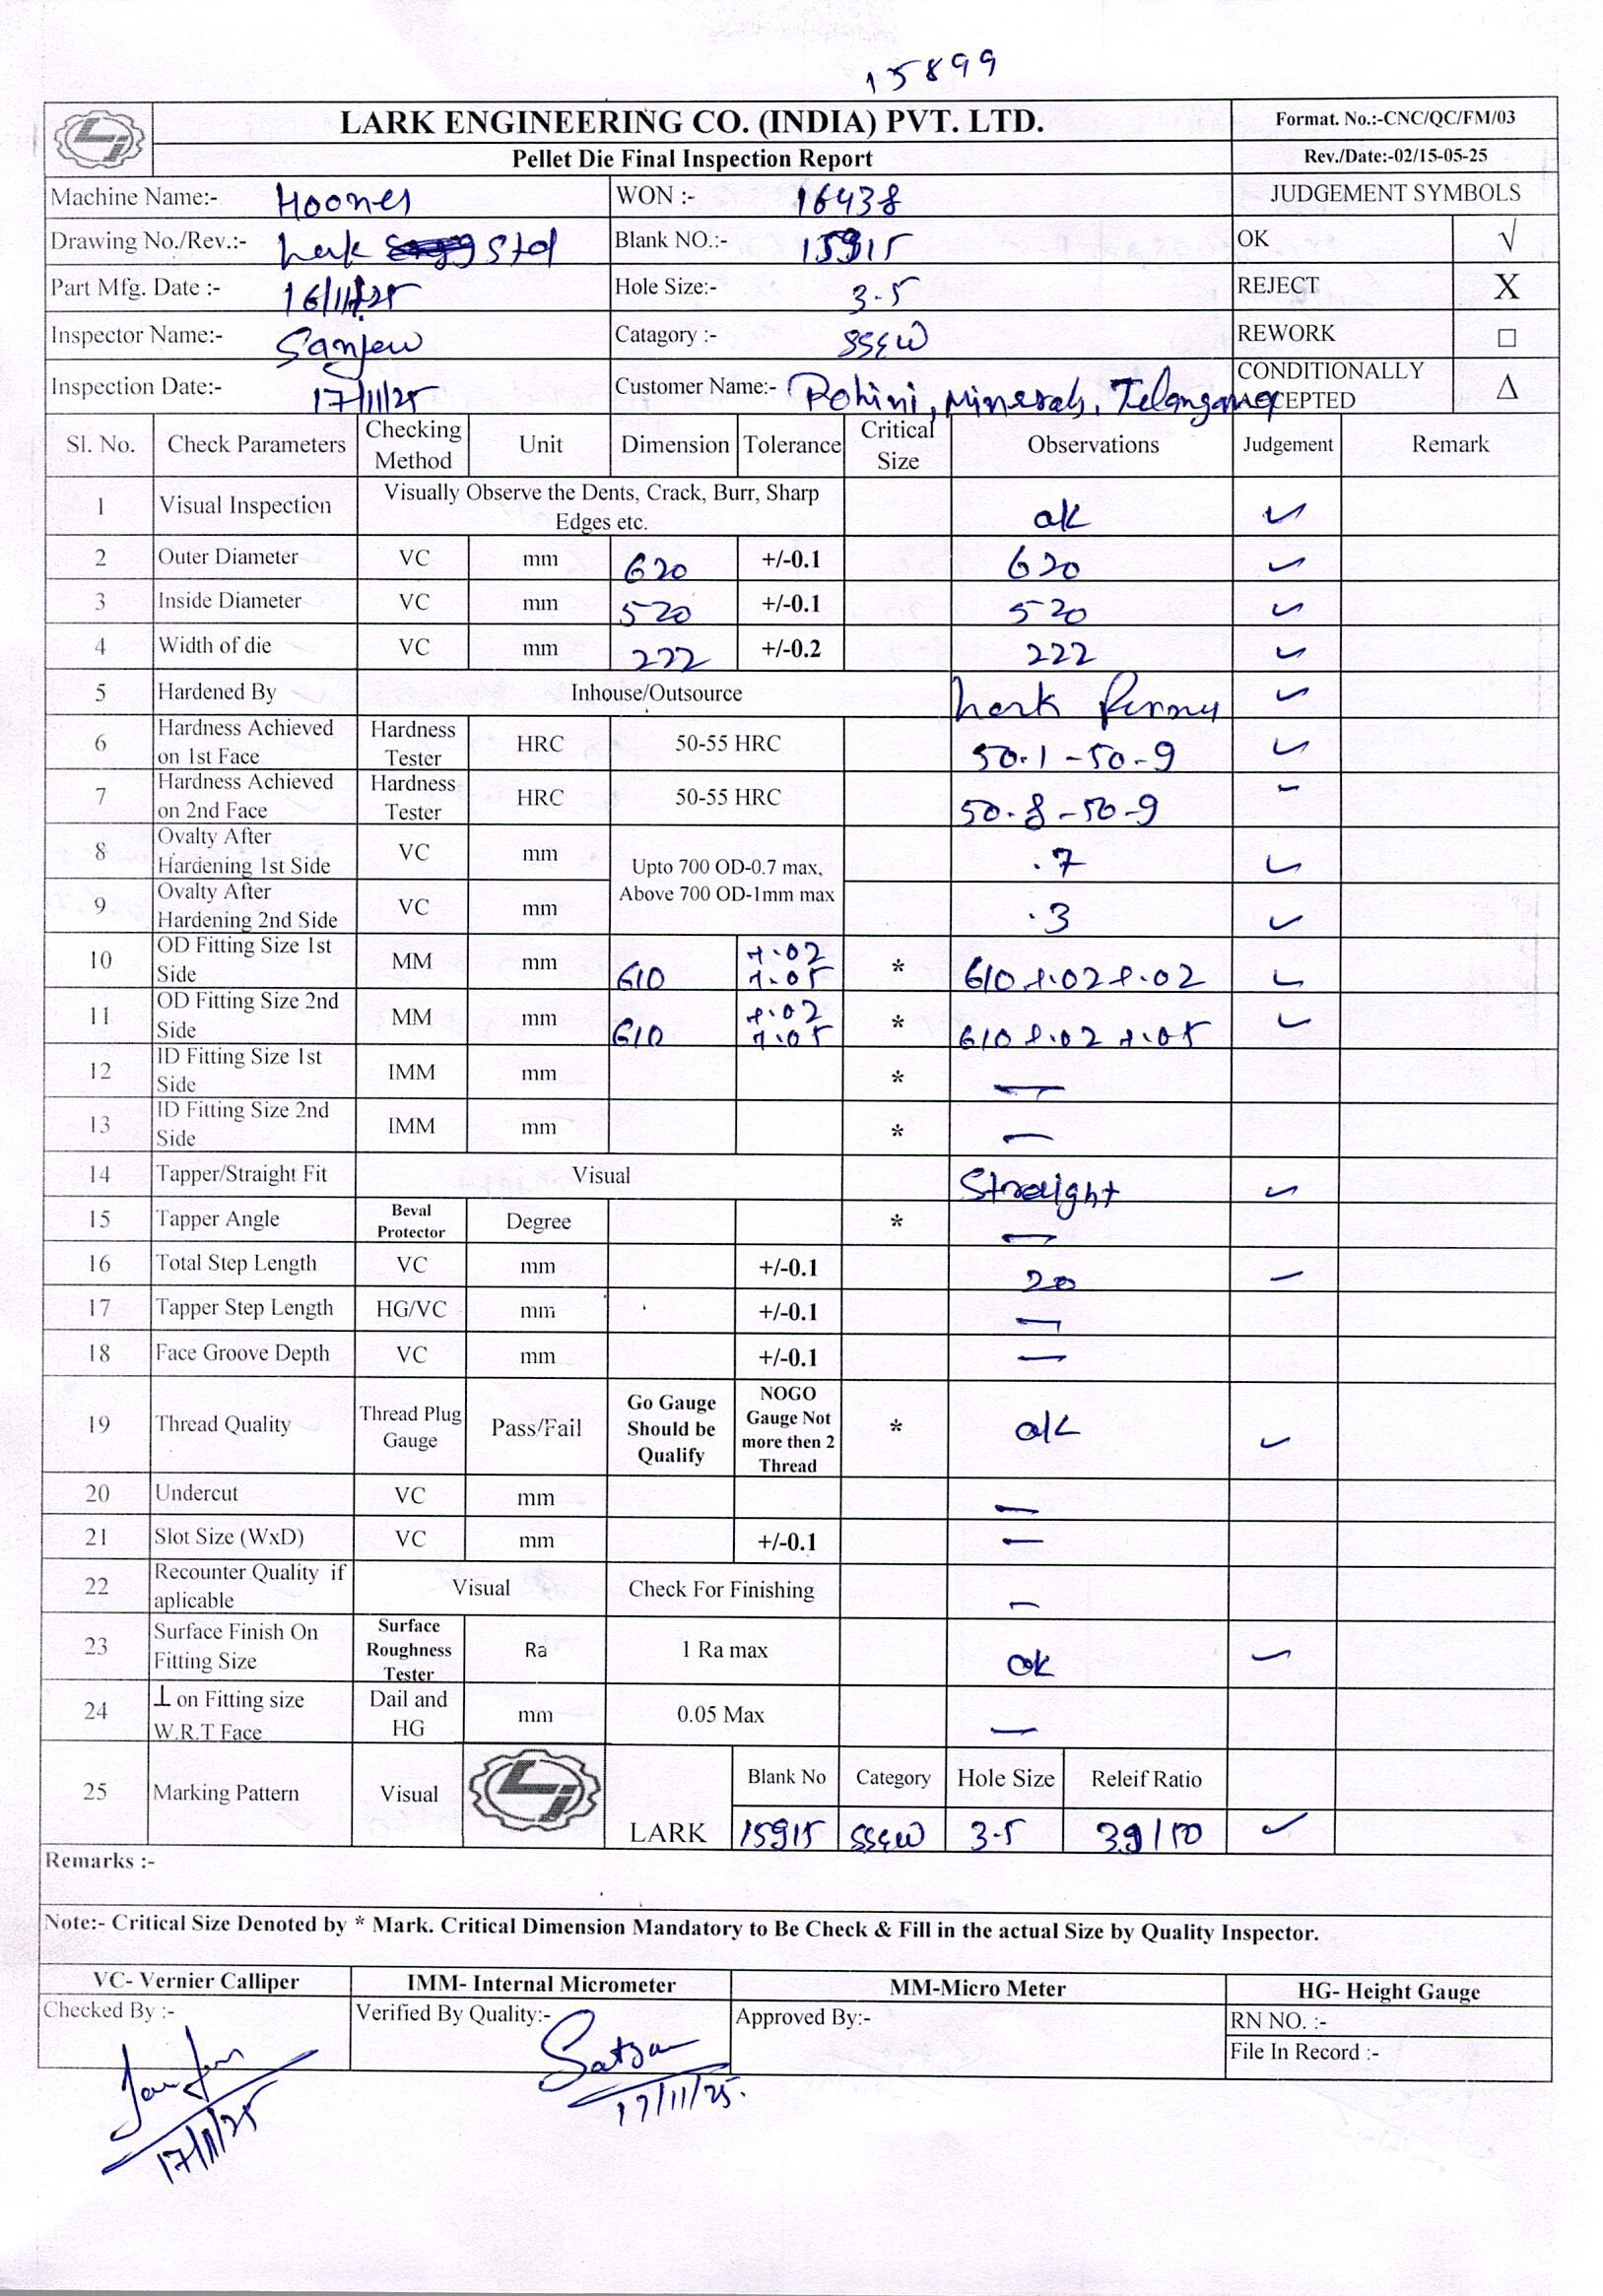 15899
LARK ENGINEERING CO. (INDIA) PVT. LTD.
Format. No.:-CNC/QC/FM/03
Pellet Die Final Inspection Report
Rev./Date:-02/15-05-25
Machine Name:- Hoones WON :- 16438 JUDGEMENT SYMBOLS
Drawing No./Rev.:- Lark Std Blank NO.:- 15915 OK √
Part Mfg. Date :- 16/11/25 Hole Size:- 3.5 REJECT X
Inspector Name:- Sanjew Catagory :- SSEW REWORK □
Inspection Date:- 17/11/25 Customer Name:- Rohini, Minerals, Telangana CONDITIONALLY ACCEPTED Δ
Sl. No. Check Parameters Checking Method Unit Dimension Tolerance Critical Size Observations Judgement Remark
1 Visual Inspection Visually Observe the Dents, Crack, Burr, Sharp Edges etc. ok ✓
2 Outer Diameter VC mm 620 +/-0.1 620 ✓
3 Inside Diameter VC mm 520 +/-0.1 520 ✓
4 Width of die VC mm 222 +/-0.2 222 ✓
5 Hardened By Inhouse/Outsource Lark ✓
6 Hardness Achieved on 1st Face Hardness Tester HRC 50-55 HRC 50.1-50.9 ✓
7 Hardness Achieved on 2nd Face Hardness Tester HRC 50-55 HRC 50.8-50.9 ✓
8 Ovalty After Hardening 1st Side VC mm Upto 700 OD-0.7 max, Above 700 OD-1mm max .7 ✓
9 Ovalty After Hardening 2nd Side VC mm .3 ✓
10 OD Fitting Size 1st Side MM mm 610 +.02 +.05 * 610 +.02 +.02 ✓
11 OD Fitting Size 2nd Side MM mm 610 +.02 +.05 * 610 +.02 +.05 ✓
12 ID Fitting Size 1st Side IMM mm * —
13 ID Fitting Size 2nd Side IMM mm * —
14 Tapper/Straight Fit Visual Straight ✓
15 Tapper Angle Beval Protector Degree * —
16 Total Step Length VC mm +/-0.1 20 ✓
17 Tapper Step Length HG/VC mm +/-0.1 —
18 Face Groove Depth VC mm +/-0.1 —
19 Thread Quality Thread Plug Gauge Pass/Fail Go Gauge Should be Qualify NOGO Gauge Not more then 2 Thread * ok ✓
20 Undercut VC mm —
21 Slot Size (WxD) VC mm +/-0.1 —
22 Recounter Quality if aplicable Visual Check For Finishing —
23 Surface Finish On Fitting Size Surface Roughness Tester Ra 1 Ra max ok ✓
24 ⊥ on Fitting size W.R.T Face Dail and HG mm 0.05 Max —
25 Marking Pattern Visual LARK Blank No Category Hole Size Releif Ratio
15915 SSEW 3.5 39/50 ✓
Remarks :-
Note:- Critical Size Denoted by * Mark. Critical Dimension Mandatory to Be Check & Fill in the actual Size by Quality Inspector.
VC- Vernier Calliper IMM- Internal Micrometer MM-Micro Meter HG- Height Gauge
Checked By :- Verified By Quality:- Approved By:- RN NO. :-
File In Record :-
Satya
17/11/25 17/11/25.